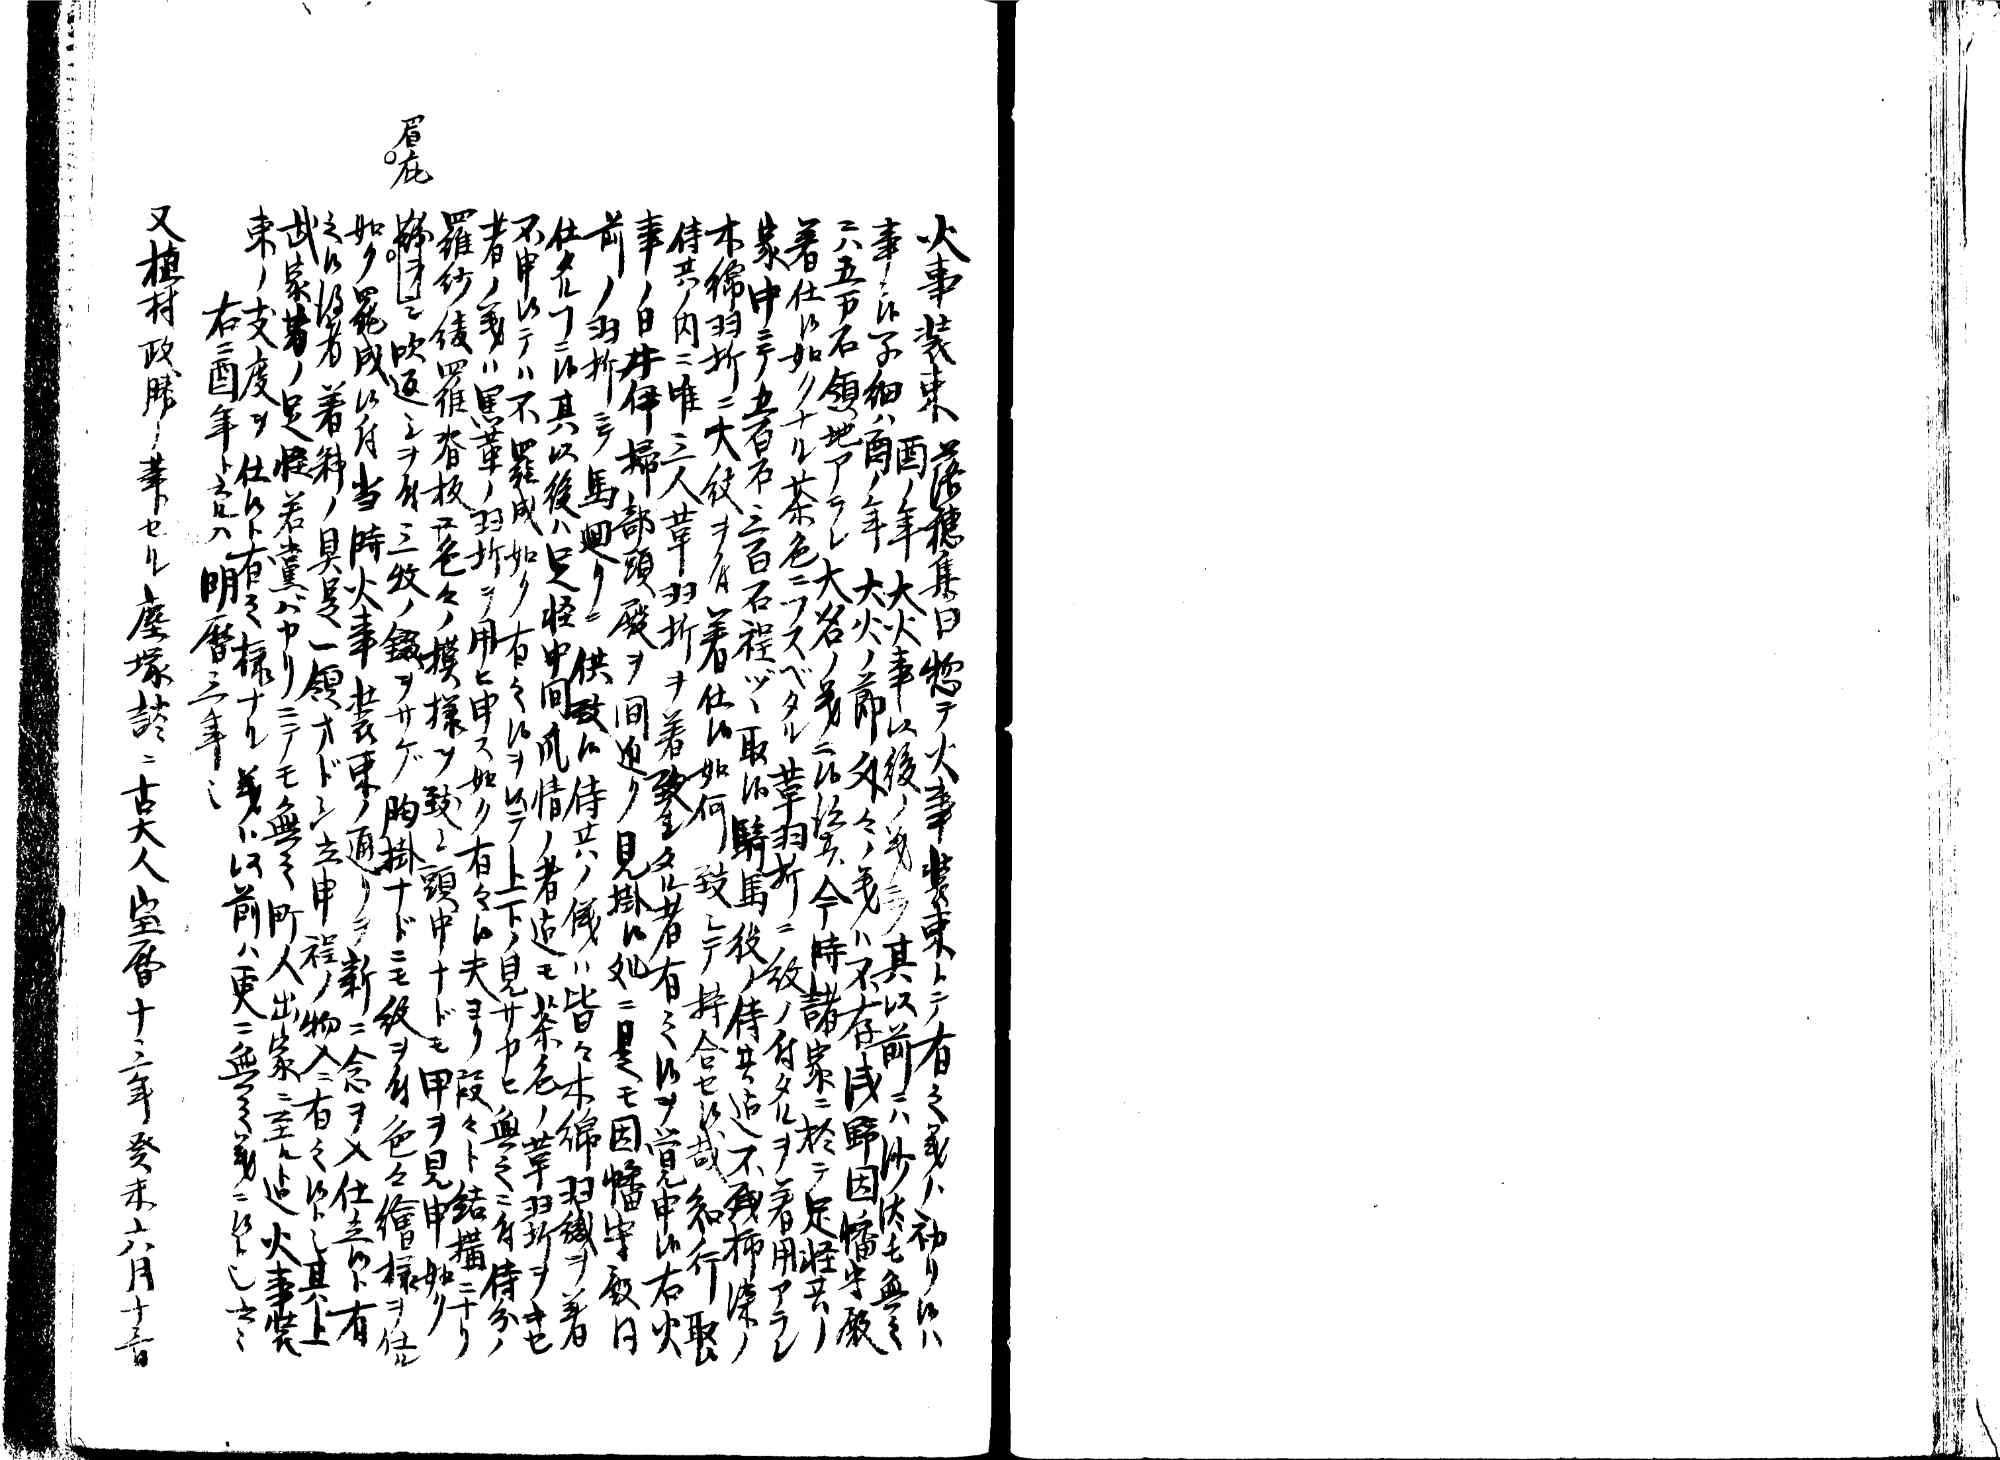 火事装束 落穂集曰惣テ火事装束トテ有之義ハ初リ候ハ
酉ノ年大火事以後ノ義ニテ其以前ニハ沙汰モ無之
事ニ候子細ハ酉ノ年大火ノ節外々ノ義ハ不存浅野因幡守殿
ニハ五万石領地アラレ大名ノ義ニ候ヘ共今時諸家ニ於テ足軽共ノ
着仕候如クナル茶色ニフスベタル革羽折ニ紋ノ付タルヲ着用アラレ
家中ニテ五百石三百石程ヅヽ取候騎馬役ノ侍共迄不残柿染ノ
木綿羽折ニ大紋ヲ付着仕候如何致シテ持合セ候哉知行取
侍共ノ内ニ唯三人革羽折ヲ着致タル者有之候ヲ覚申候右火
事ノ日井伊掃部頭殿ヲ間近ク見掛候処ニ是モ因幡守殿同
前ノ羽折ニテ馬廻リニ供致候侍共ノ儀ハ皆々木綿羽織ヲ着
仕タルコニ候其以後ハ足軽中間風情ノ者迄モ茶色ノ革羽折ヲキセ
不申候テハ不罷成如ク有之候ヲ以テ上下ノ見サカヒ無之ニ付侍分ノ
者ノ義ハ黒革ノ羽折ヲ用ヒ申ス如ク有之候夫ヨリ段々ト結構ニナリ
羅紗綾羅脊板又色々ノ模様ヲ致シ頭巾ナドモ甲ヲ見申如ク
眉庇
吹返シヲ付三枚ノ錣ヲサゲ胸掛ナドニモ紋ヲ付色々繪様ヲ仕ル
如ク罷成候付当時火事装束ノ通リヲ新ニ念ヲ入仕立候ト有
之候得者着料ノ具足一領オドシ立申程ノ物入ニ有之候ト也其上
武家ノ足軽若黨バカリニテモ無之町人出家ニ至ル迄火事装
束ノ支度ヲ仕候ト有之様ナル義ハ以前ハ更ニ無之義ニ候ト也云々
右ニ酉年ト言ハ明暦三年也
又植村政勝ノ筆トセル塵塚談ニ古大人宝暦十三年癸未六月十三日